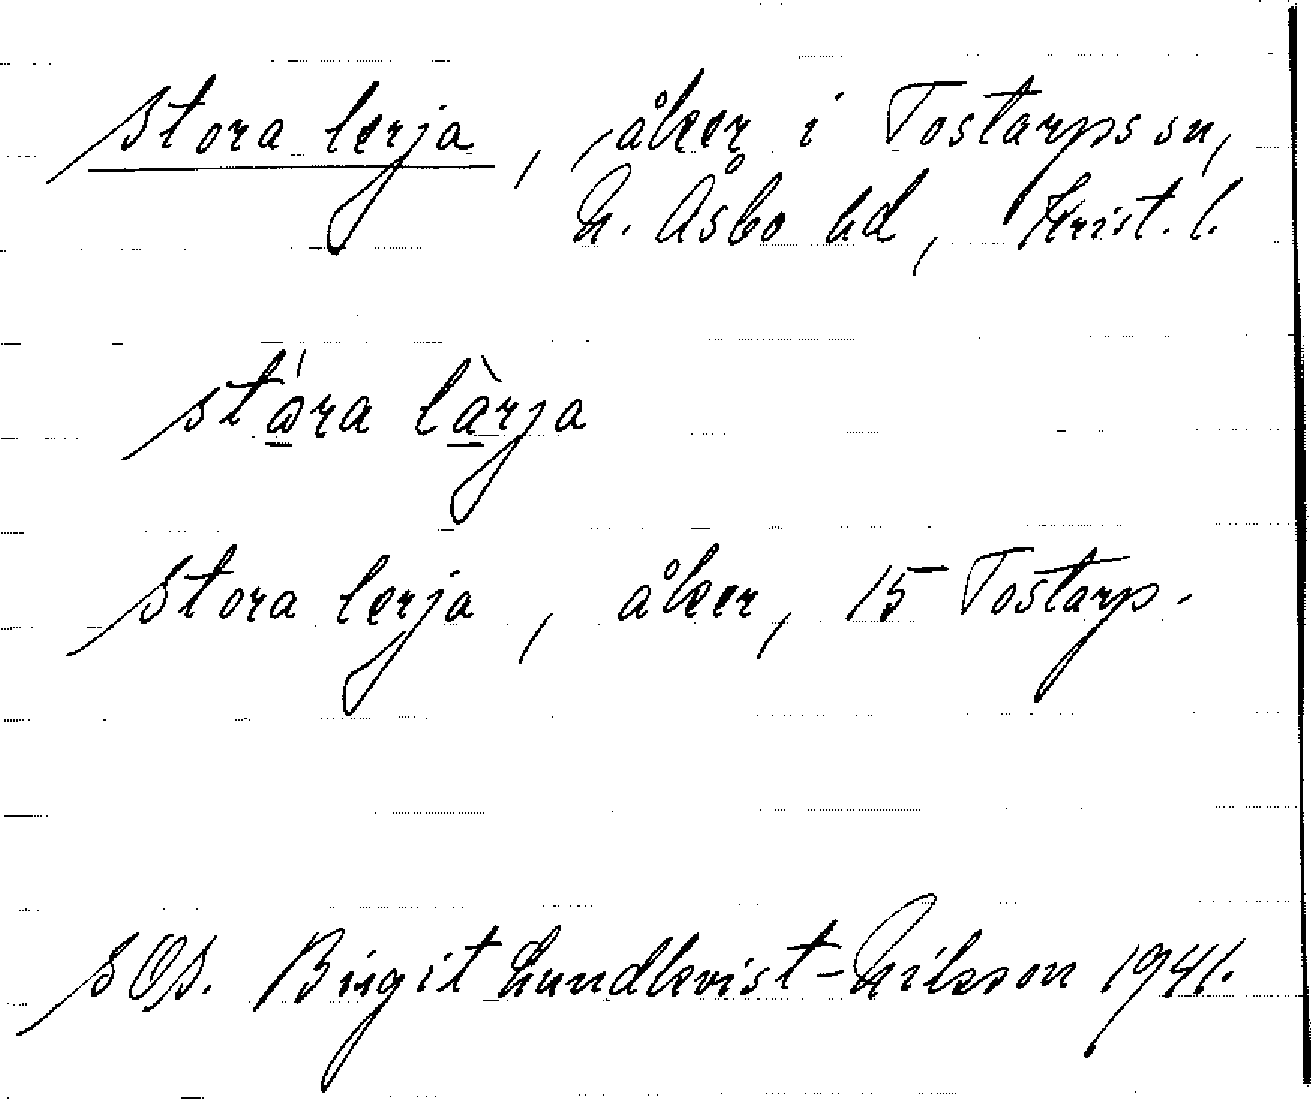 Stora lerja, åker i Tostarps sn,
N. Åsbo hd, Krist. l.
stǻra là̱rja
Stora lerja, åker, 15 Tostarp.
SOS. Birgit Lundkvist-Nilsson 1941.